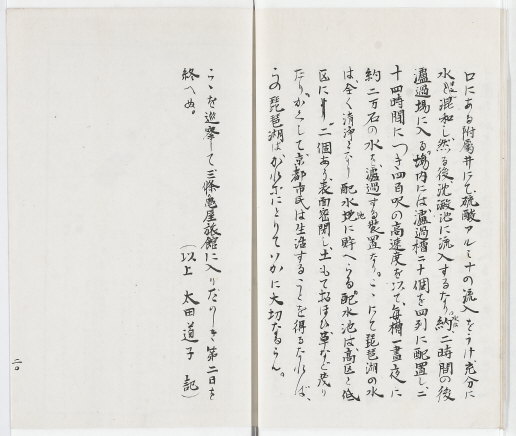 口にある附属井にて硫酸アルミナの流入をうけ充分に
水と混和し然る後沈澱池に流入するなり。約二時間の後
濾過場に入る。場内には濾過槽二十個を四列に配置し二
十四時間につき四百呎の高速度を以て、毎槽一昼夜に
約二万石の水を濾過する装置なり。こゝにて琵琶湖の水
は、全く清浄となり配水池に貯へらる。配水池は高区と低
区に二個あり、表面密閉し土もておほひ草など茂り
たり。かくして京都市民は生活することを得るなれば、
この琵琶湖はかれらにとりていかに大切なるらん。
こゝを巡察して三條亀屋旅館に入りたりしき第二日を
終へぬ。
(以上 太田道子 記)
二〇